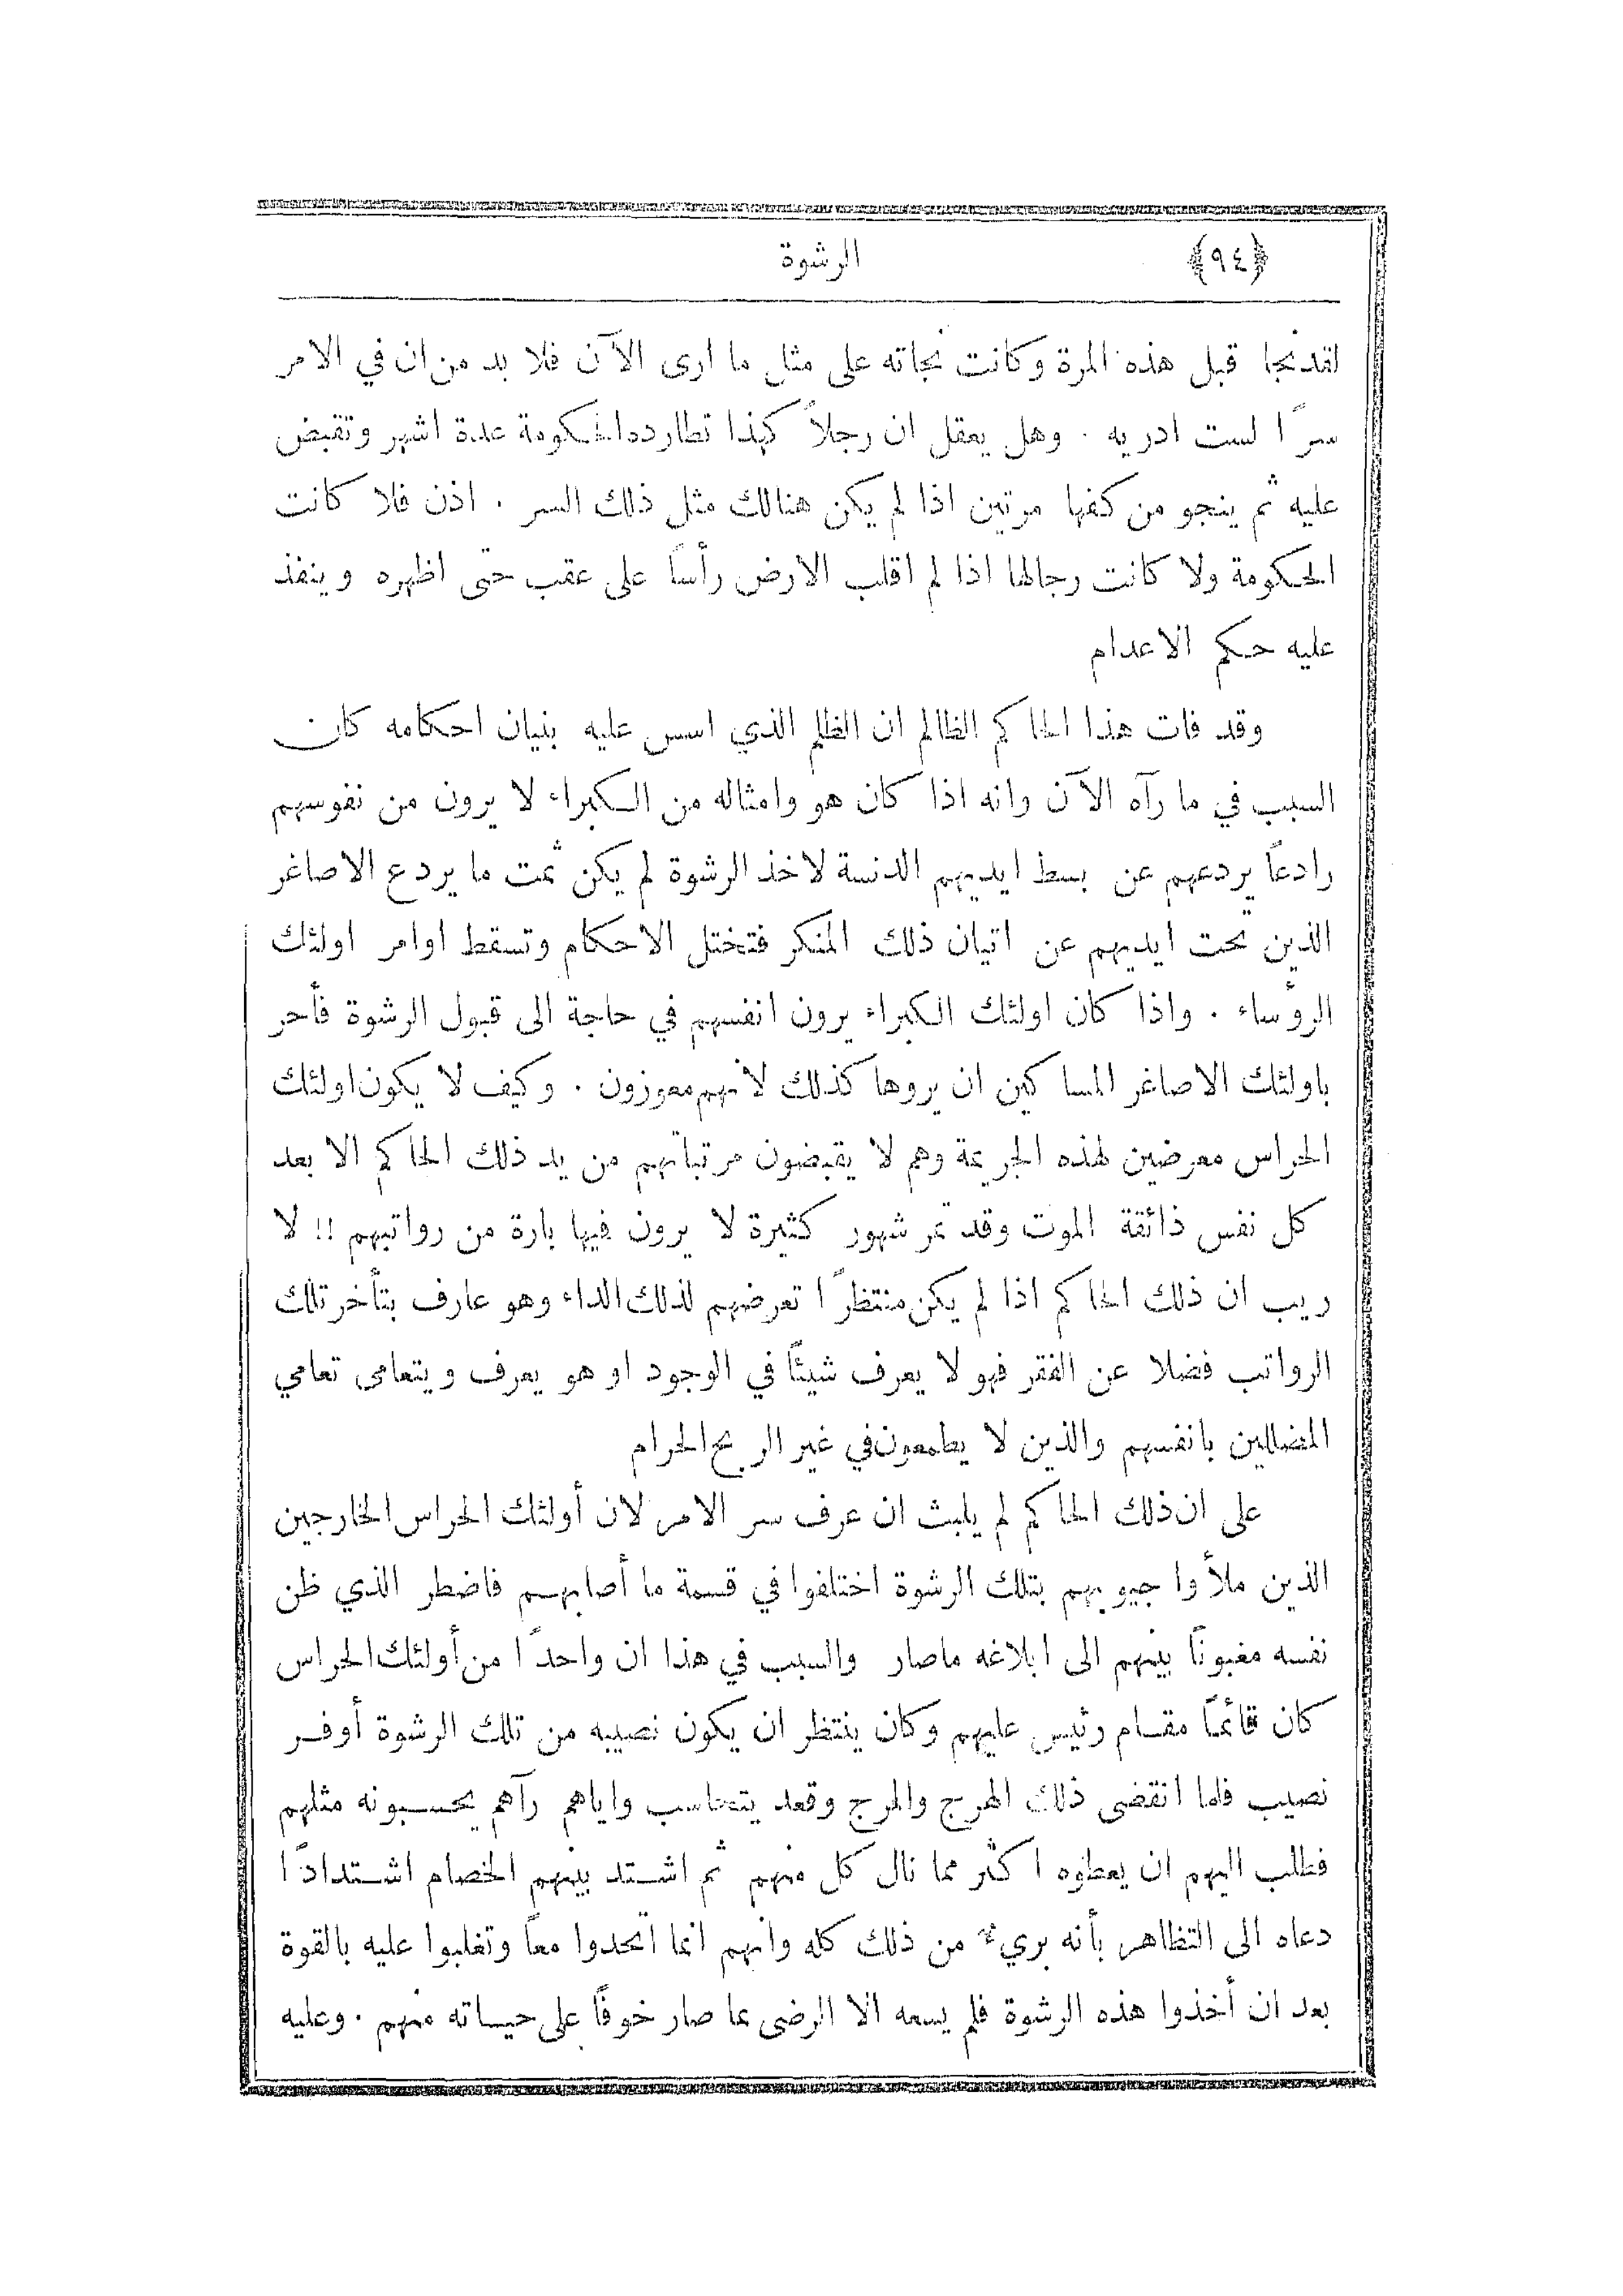 ﴿٩٤﴾ الرشوة
لقد نجا قبل هذه المرة وكانت نجاته على مثل ما ارى الآن فلا بد من ان في الامر
سرًا لست ادريه . وهل يعقل ان رجلاً كهذا تطارده الحكومة عدة اشهر وتقبض
عليه ثم ينجو من كفها مرتين اذا لم يكن هنالك مثل ذلك السر . اذن فلا كانت
الحكومة ولا كانت رجالها اذا لم اقلب الارض رأسًا على عقب حتى اظهره وينفذ
عليه حكم الاعدام
وقد فات هذا الحاكم الظالم ان الظلم الذي اسس عليه بنيان احكامه كان
السبب في ما رآه الآن وانه اذا كان هو وامثاله من الكبراء لا يرون من نفوسهم
رادعًا يردعهم عن بسط ايديهم الدنسة لاخذ الرشوة لم يكن ثمت ما يردع الاصاغر
الذين تحت ايديهم عن اتيان ذلك المنكر فتختل الاحكام وتسقط اوامر اولئك
الرؤساء . واذا كان اولئك الكبراء يرون انفسهم في حاجة الى قبول الرشوة فأحر
باولئك الاصاغر المساكين ان يروها كذلك لانهم معوزون . وكيف لا يكون اولئك
الحراس معرضين لهذه الجريمة وهم لا يقبضون مرتباتهم من يد ذلك الحاكم الا بعد
كل نفس ذائقة الموت وقد تمر شهور كثيرة لا يرون فيها بارة من رواتبهم !! لا
ريب ان ذلك الحاكم اذا لم يكن منتظرًا تعرضهم لذلك الداء وهو عارف بتأخر تلك
الرواتب فضلا عن الفقر فهو لا يعرف شيئًا في الوجود او هو يعرف ويتعامى تعامي
المضللين بانفسهم والذين لا يطمعون في غير الربح الحرام
على ان ذلك الحاكم لم يلبث ان عرف سر الامر لان أولئك الحراس الخارجين
الذين ملأوا جيوبهم بتلك الرشوة اختلفوا في قسمة ما أصابهم فاضطر الذي ظن
نفسه مغبونًا بينهم الى ابلاغه ماصار والسبب في هذا ان واحدًا من أولئك الحراس
كان قائمًا مقام رئيس عليهم وكان ينتظر ان يكون نصيبه من تلك الرشوة أوفر
نصيب فلما انقضى ذلك الهرج والمرج وقعد يتحاسب واياهم رآهم يحسبونه مثلهم
فطلب اليهم ان يعطوه اكثر مما نال كل منهم ثم اشتد بينهم الخصام اشتدادًا
دعاه الى التظاهر بأنه بريء من ذلك كله وانهم انما اتحدوا معًا وتغلبوا عليه بالقوة
بعد ان أخذوا هذه الرشوة فلم يسعه الا الرضى بما صار خوفًا على حياته منهم . وعليه